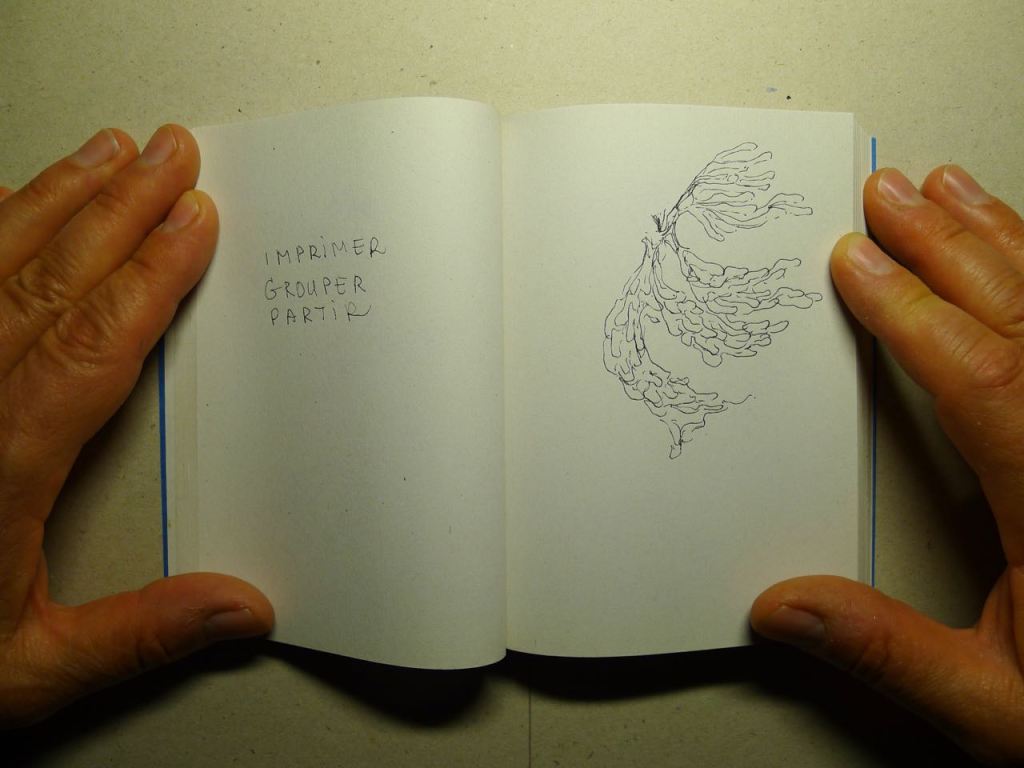 IMPRIMER
GROUPER
PARTIR